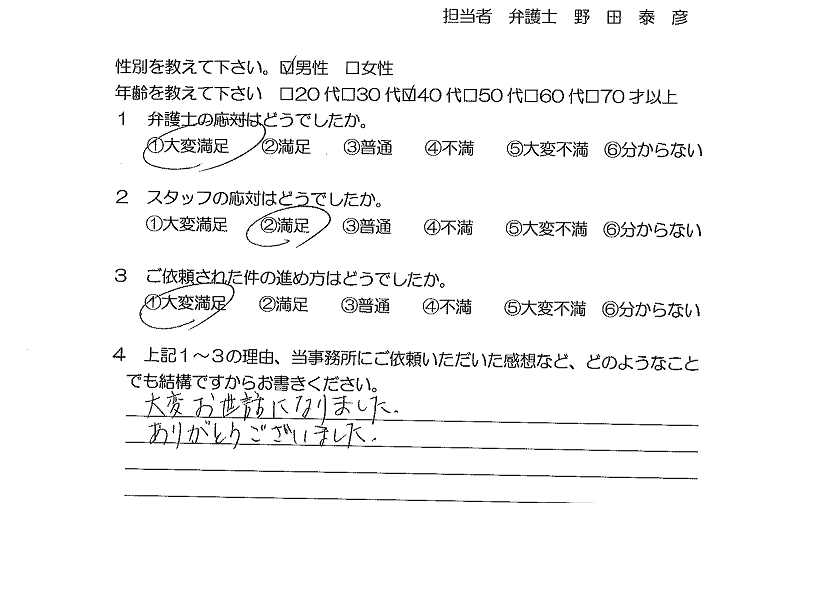 担当者 弁護士 野 田 泰 彦
性別を教えて下さい。☑男性 □女性
年齢を教えて下さい □20代□30代☑40代□50代□60代□70才以上
1 弁護士の応対はどうでしたか。
①大変満足 ②満足 ③普通 ④不満 ⑤大変不満 ⑥分からない
2 スタッフの応対はどうでしたか。
①大変満足 ②満足 ③普通 ④不満 ⑤大変不満 ⑥分からない
3 ご依頼された件の進め方はどうでしたか。
①大変満足 ②満足 ③普通 ④不満 ⑤大変不満 ⑥分からない
4 上記1～3の理由、当事務所にご依頼いただいた感想など、どのようなこと
でも結構ですからお書きください。
大変お世話になりました。
ありがとうございました。